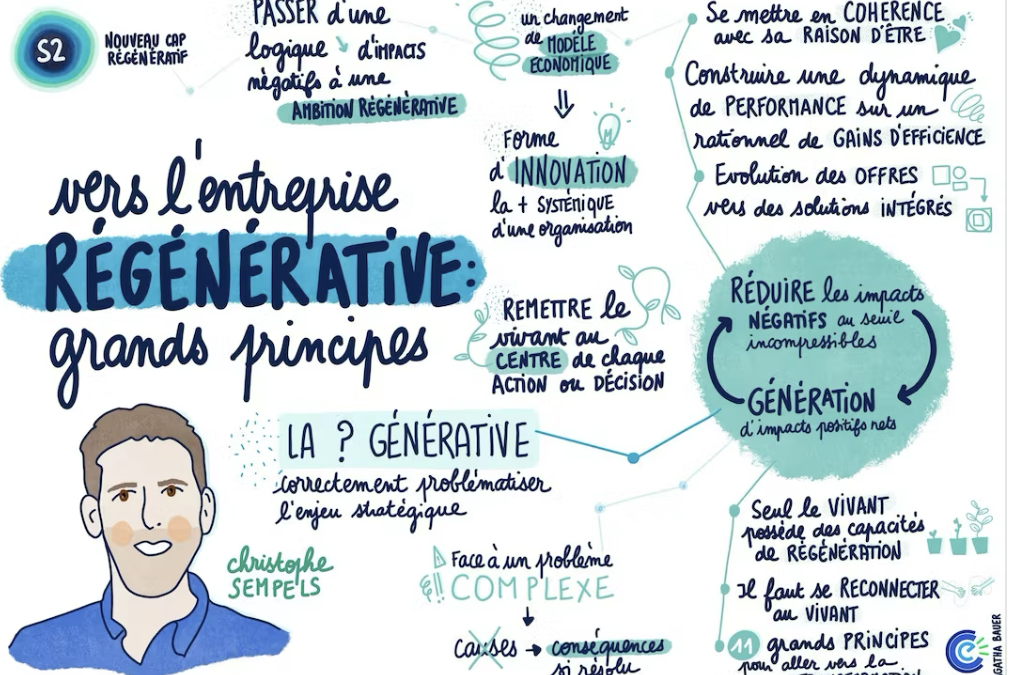 S2
NOUVEAU CAP
RÉGÉNÉRATIF
PASSER d'une
logique d'IMPACTS
négatifs à une
AMBITION RÉGÉNÉRATIVE
un changement
de MODÈLE
ÉCONOMIQUE
Forme
d'INNOVATION
la + SYSTÉMIQUE
d'une organisation
REMETTRE le
vivant au
CENTRE de chaque
ACTION ou DÉCISION
Se mettre en COHERENCE
avec sa RAISON D'ÊTRE
Construire une dynamique
de PERFORMANCE sur un
rationnel de GAINS D'EFFICIENCE
Evolution des OFFRES
vers des solutions INTÉGRÉS
vers l'entreprise
RÉGÉNÉRATIVE:
grands principes
RÉDUIRE les impacts
NÉGATIFS au seuil
incompressibles
GÉNÉRATION
d'impacts positifs nets
LA ? GÉNÉRATIVE
correctement problématiser
l'enjeu stratégique
christophe
SEMPELS
Face à un problème
COMPLEXE
Causes → conséquences
si résolu
Seul le VIVANT
possède des capacités
de RÉGÉNÉRATION
Il faut se RECONNECTER
au VIVANT
11 grands PRINCIPES
pour aller vers la
GATHA BAUER